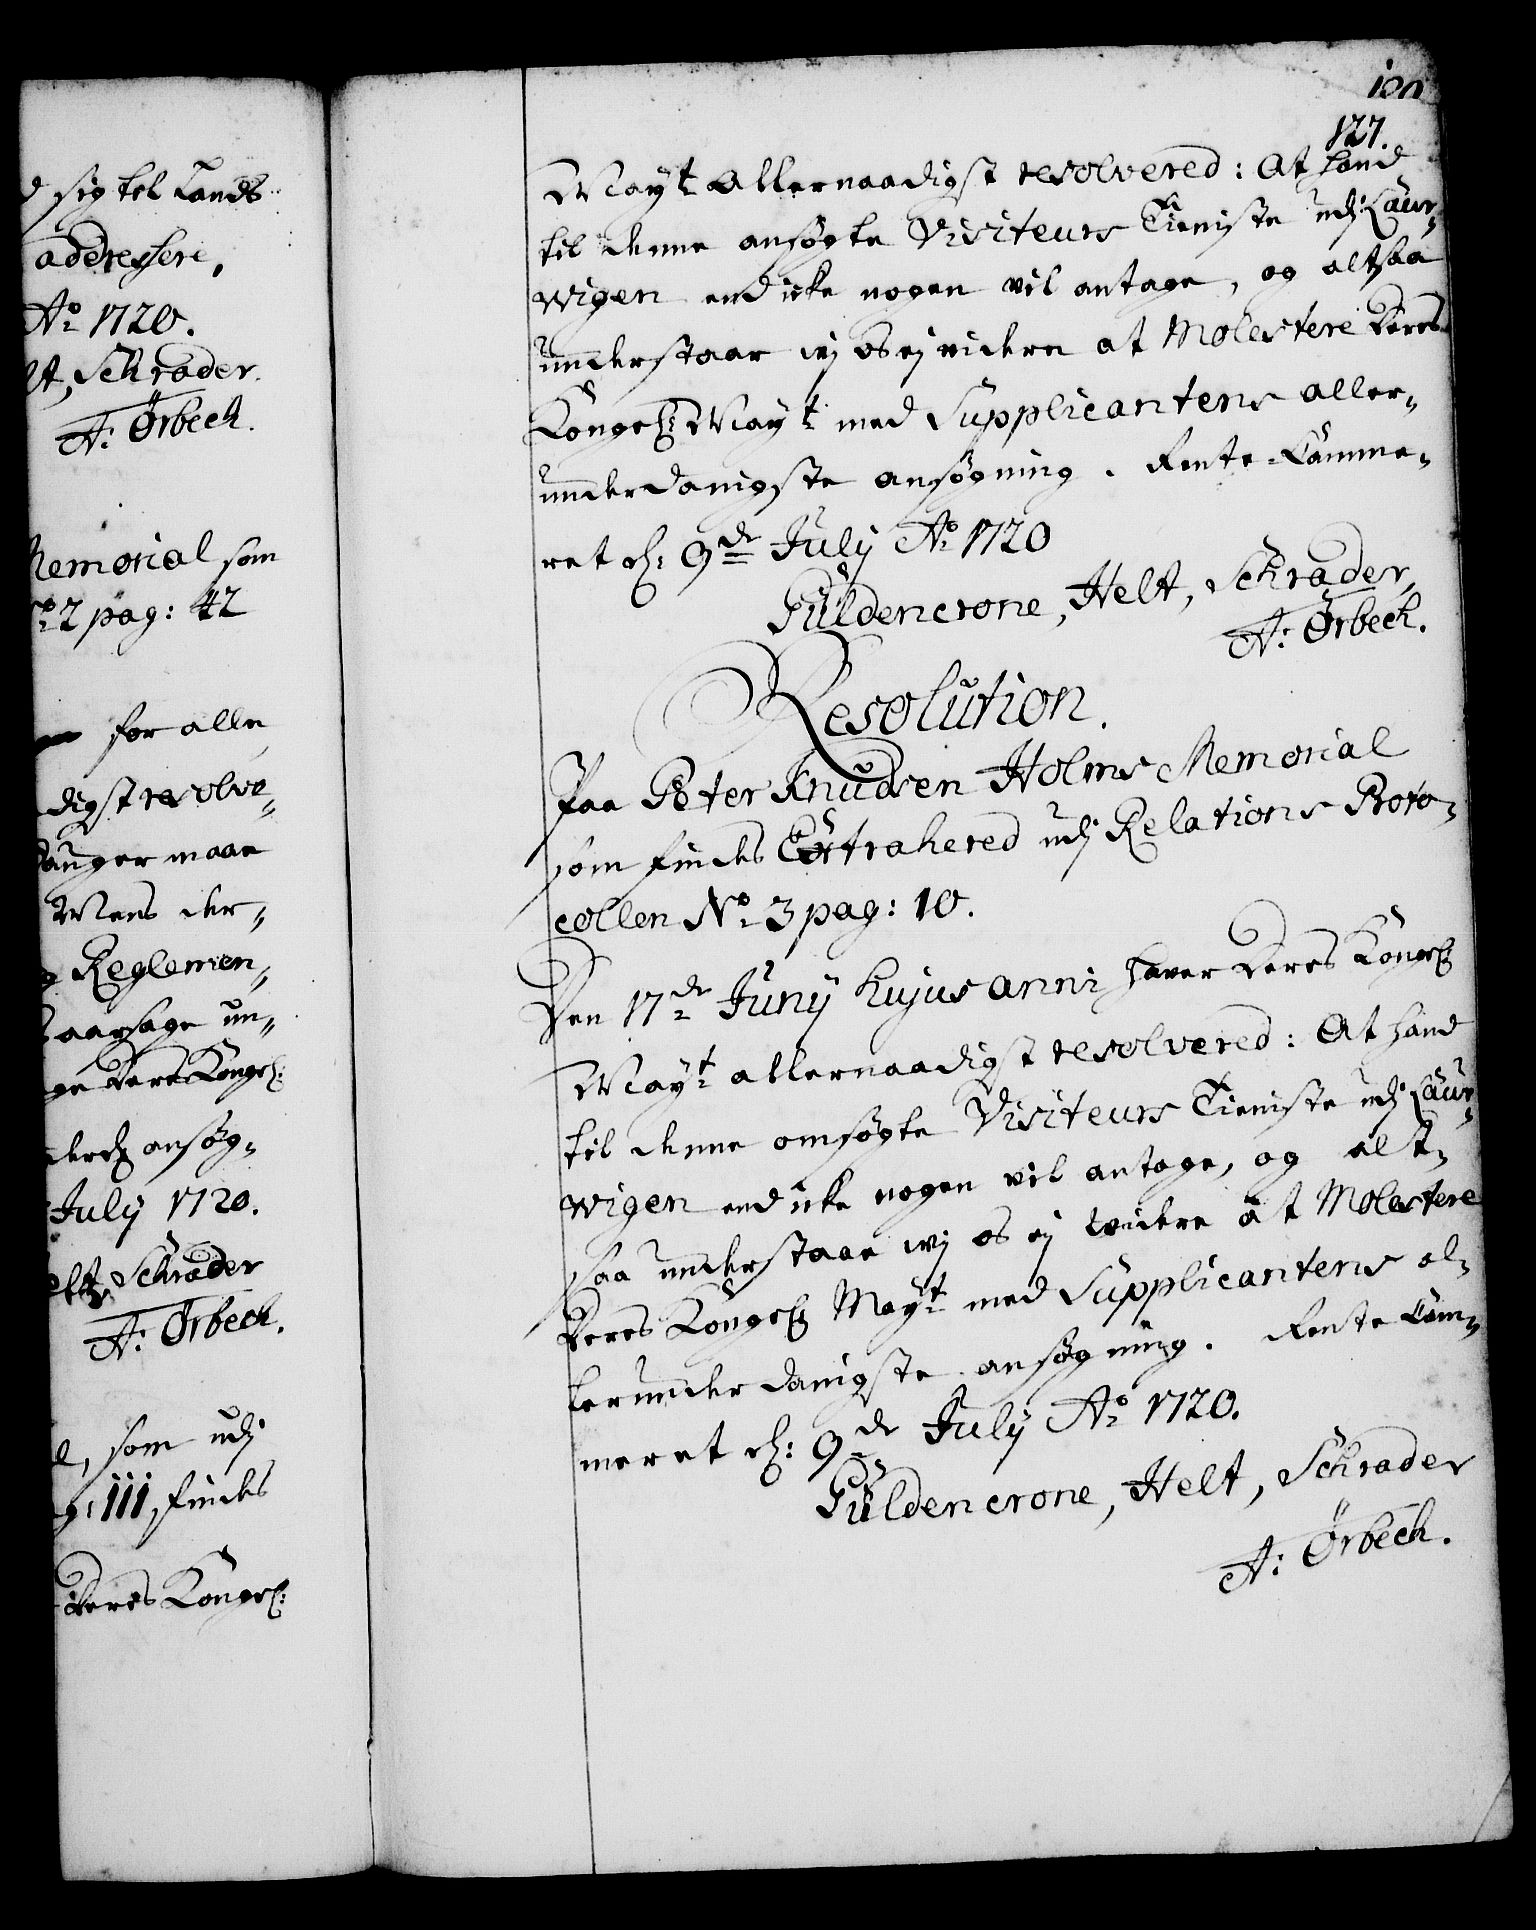 d sig til Lands
adressere,
Aº 1720.
lt, Schrader.
A: Ørbech.
Memorial som
º 2 pag: 42
for alle
digst resolve-
Mens der-
Reglemen-
aarsage un-
ge Deres Kongel:
ansøg-
July 1720.
elt, Schrader
A: Ørbech.
som udj
g: 111, findes
Deres Kongel:
127.
Mayt Allernaadigst resolvered: At hand
til denne ansøgte Visiteurs Tieniste udj Laur-
wigen end icke nogen vil antage, og altsaa
understaar wj os ej videre at Molestere Deres
Kongel: Mayt med Supplicantens aller-
underdanigste ansøgning. Rente-Camme-
ret d: 9de July Aº 1720
Güldencrone, Helt, Schrader,
A: Ørbech.
Resolution.
Paa Peter Knudsen Holms Memorial
som findes Extrahered udj Relations Proto-
collen Nº 3 pag: 10.
Den 17de Junij hujus anni haver Deres Kongel:
Mayt allernaadigst resolvered: At hand
til denne omsøgte Visiteurs Tieniste udj Laur-
wigen end icke nogen vil antage, og alt-
saa understaar wj os ej widere at Molestere
Deres Kongel: Mayt med Supplicantens al-
lerunderdanigste ansøgning. Rente Cam-
meret d: 9de July Aº 1720.
Güldencrone, Helt, Schrader
A: Ørbech.